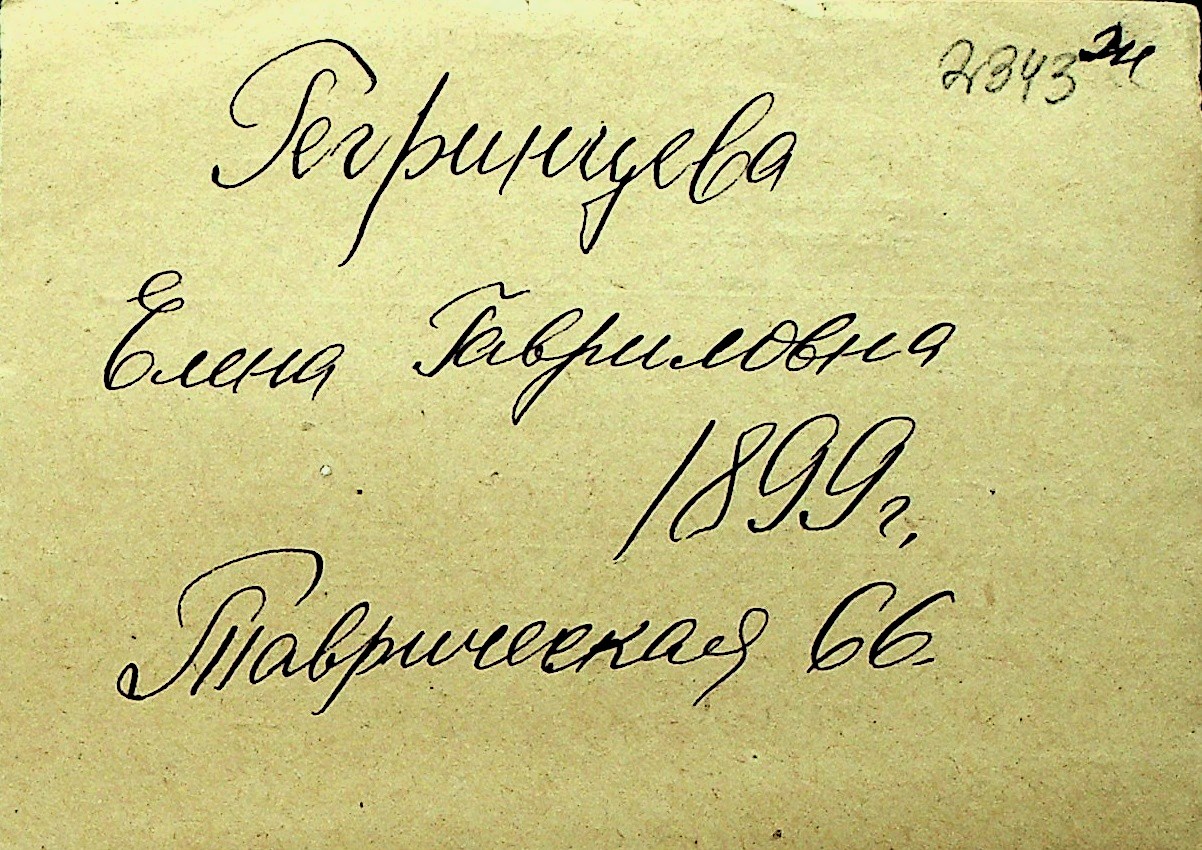 2343
Гегринцева
Елена Гавриловна
1899г.
Таврическая 66.